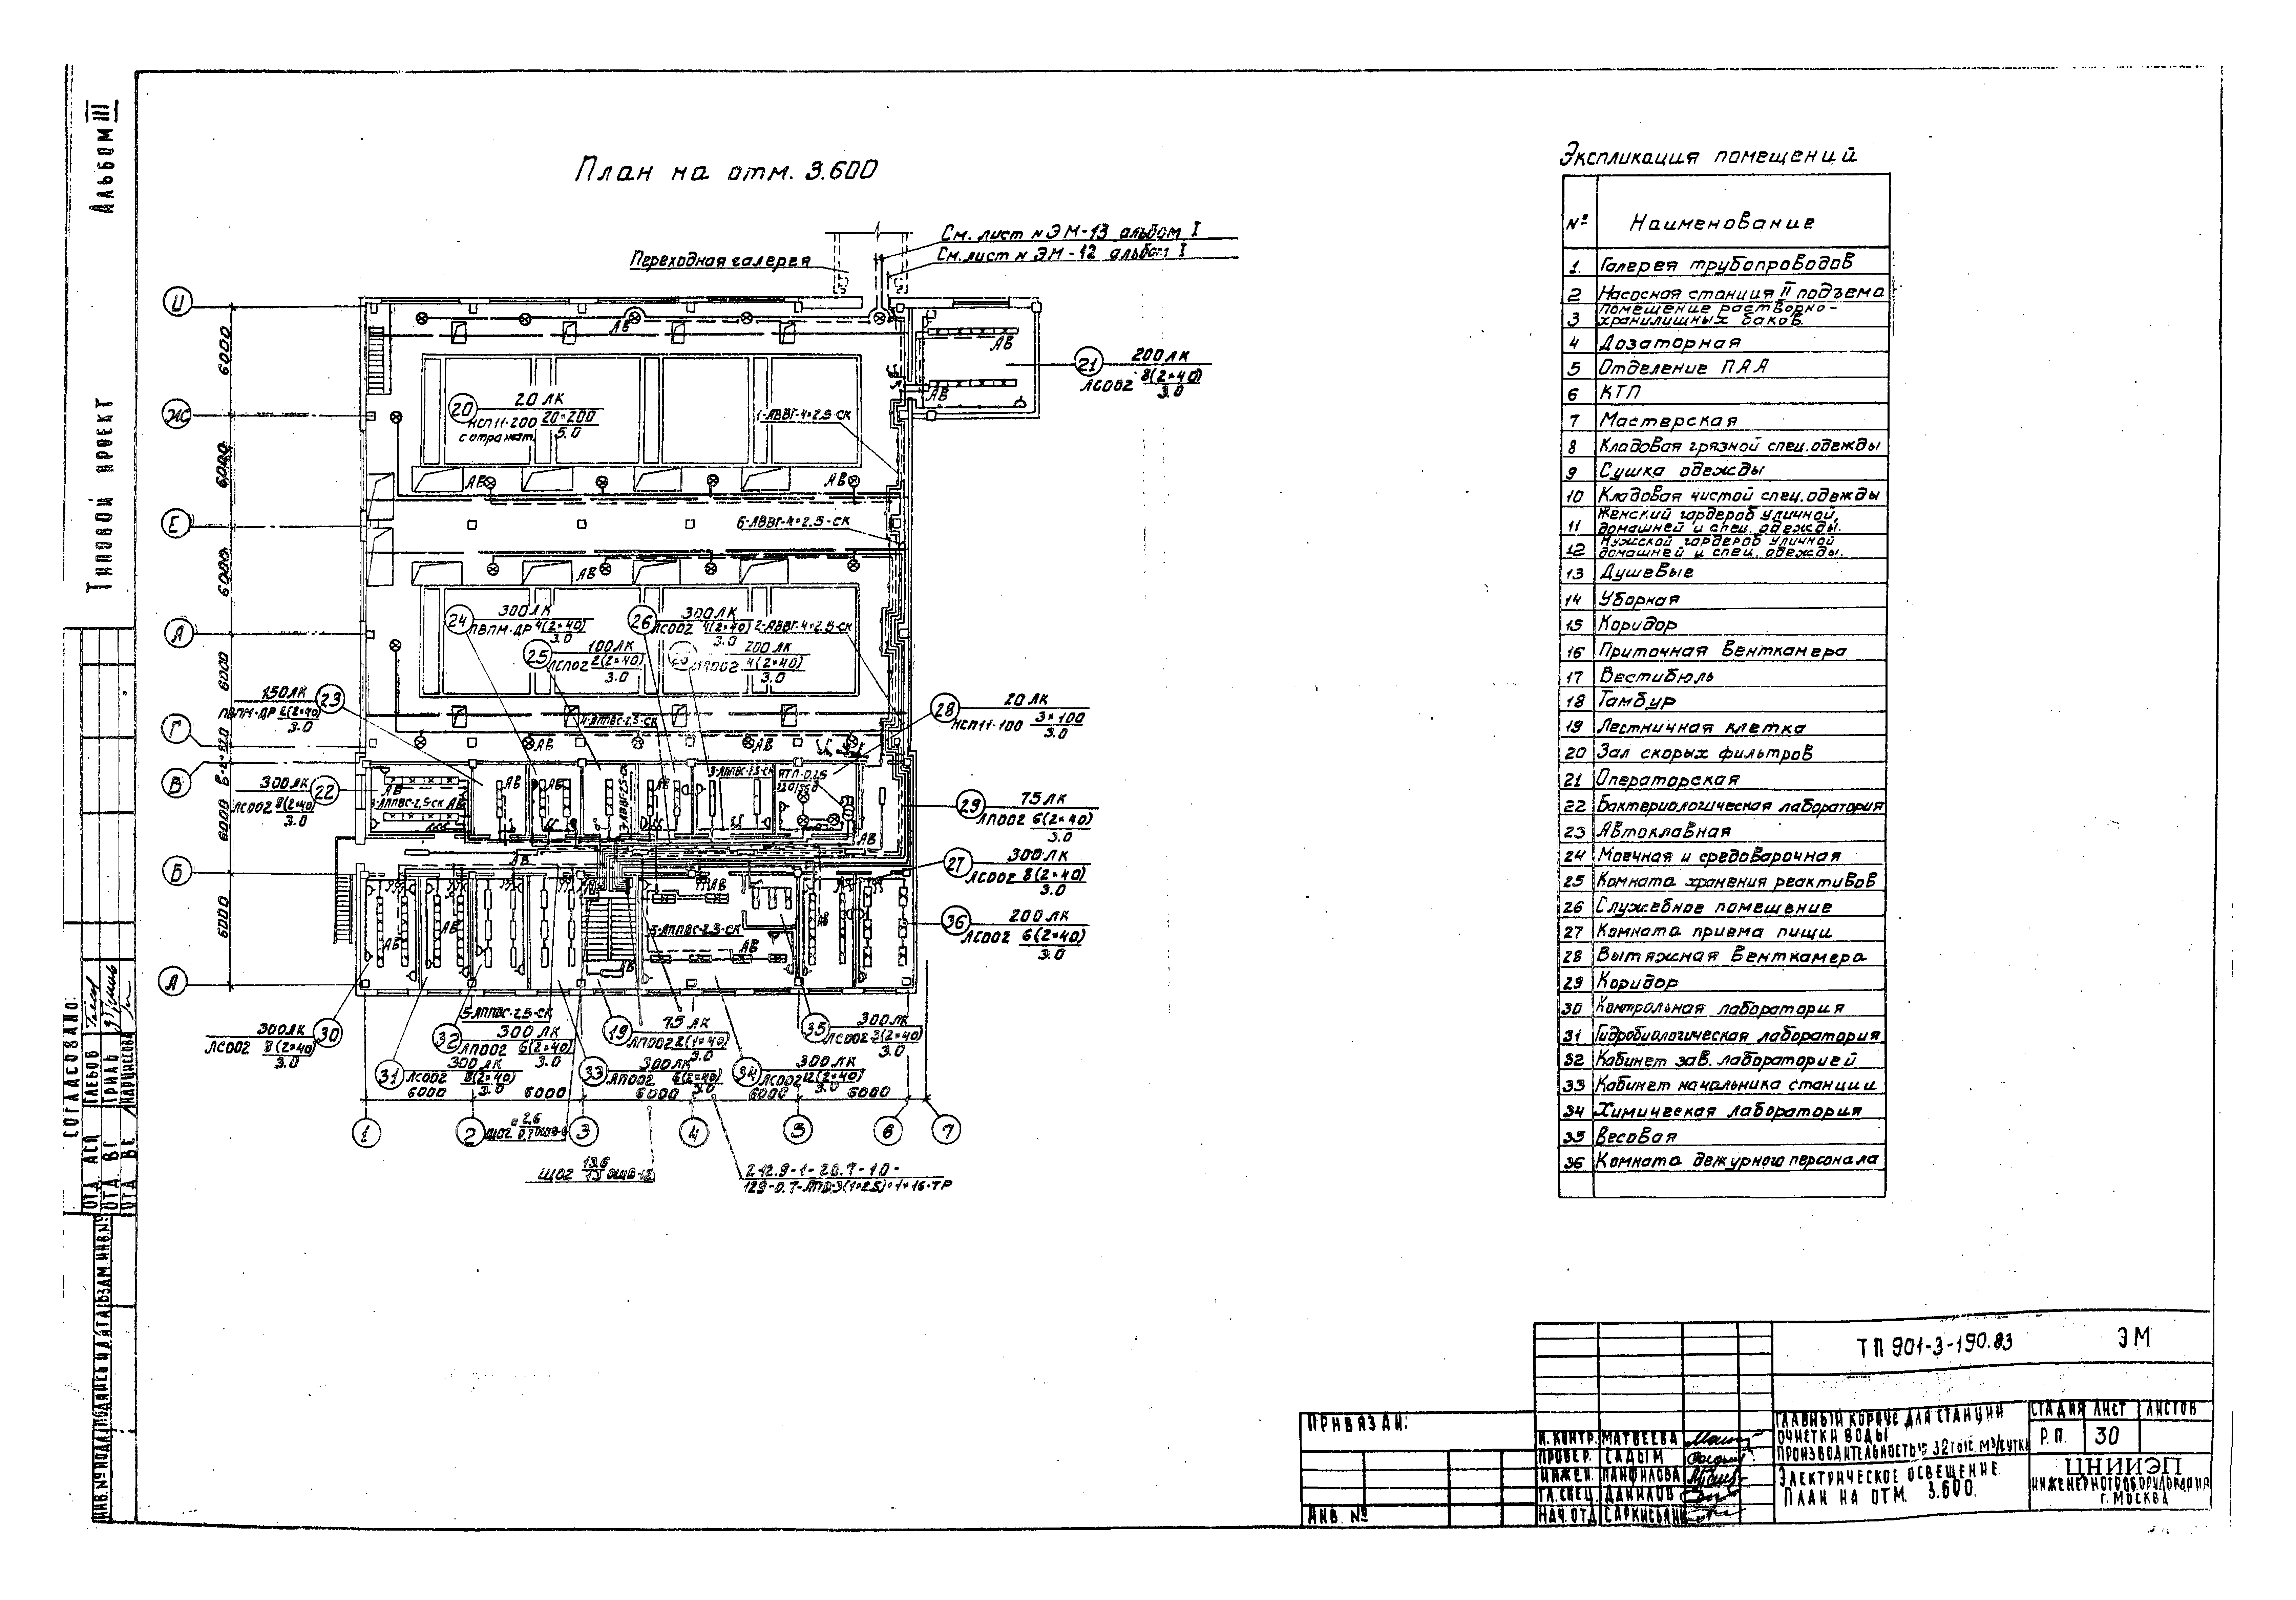 Альбом III
Типовой проект
План на отм. 3.600
Переходная галерея
См. лист N ЭМ-13 альбом I
См. лист N ЭМ-12 альбом I
И
Ж
Е
Д
Г
В
Б
А
6000
6000
6000
6000
6000
6000
20
20 ЛК
НСП11-200 20×200
5.0
с отражат.
21
200 ЛК
ЛСО02 8(2×40)
3.0
1-АВВГ-4×2.5-СК
6-АВВГ-4×2.5-СК
2-АВВГ-4×2.5-СК
АВ
24
300 ЛК
ПВЛМ-ДР 4(2×40)
3.0
25
100 ЛК
ЛСП02 2(2×40)
3.0
26
300 ЛК
ЛСО02 4(2×40)
3.0
200 ЛК
4(2×40)
3.0
23
150 ЛК
ПВЛМ-ДР 2(2×40)
3.0
28
20 ЛК
НСП11-100 3×100
3.0
4-АППВС-2.5-СК
22
300 ЛК
ЛСО02 8(2×40)
3.0
3-АППВС-2.5-СК
3-АППВС-2.5-СК
ЯТП-0.25
29
75 ЛК
ЛПО02 6(2×40)
3.0
27
300 ЛК
ЛСО02 8(2×40)
3.0
36
200 ЛК
ЛСО02 6(2×40)
3.0
5-АППВС-2.5-СК
5-АППВС-2.5-СК
30
300 ЛК
ЛСО02 8(2×40)
3.0
31
300 ЛК
ЛСО02 8(2×40)
3.0
32
300 ЛК
ЛПО02 6(2×40)
3.0
33
300 ЛК
ЛПО02 6(2×40)
3.0
19
75 ЛК
ЛПО02 2(1×40)
3.0
34
300 ЛК
ЛСО02 12(2×40)
3.0
35
300 ЛК
ЛСО02 3(2×40)
3.0
6000 6000 6000 6000 6000
1 2 3 4 5 6 7
ЩО2 13.6
2-12.9-1-20.7-1.0-
Экспликация помещений
№ Наименование
1. Галерея трубопроводов
2 Насосная станция II подъема
3 Помещение растворно-
хранилищных баков.
4 Дозаторная
5 Отделение ПАА
6 КТП
7 Мастерская
8 Кладовая грязной спец. одежды
9 Сушка одежды
10 Кладовая чистой спец. одежды
11 Женский гардероб уличной,
домашней и спец. одежды.
12 Мужской гардероб уличной
домашней и спец. одежды.
13 Душевые
14 Уборная
15 Коридор
16 Приточная венткамера
17 Вестибюль
18 Тамбур
19 Лестничная клетка
20 Зал скорых фильтров
21 Операторская
22 Бактериологическая лаборатория
23 Автоклавная
24 Моечная и средоварочная
25 Комната хранения реактивов
26 Служебное помещение
27 Комната приема пищи
28 Вытяжная венткамера
29 Коридор
30 Контрольная лаборатория
31 Гидробиологическая лаборатория
32 Кабинет зав. лабораторией
33 Кабинет начальника станции
34 Химическая лаборатория
35 Весовая
36 Комната дежурного персонала
СОГЛАСОВАНО:
ОТД АСП ГЛЕБОВ
ОТД ВГ ГРИЛЬ
ОТД ВС НАРЦИССОВА
ИНВ.№ПОДЛ ПОДПИСЬ И ДАТА ВЗАМ.ИНВ.№
ПРИВЯЗАН:
ИНВ. №
Н. КОНТР. МАТВЕЕВА
ПРОВЕР. САДЫМ
ИНЖЕН. ПАНФИЛОВА
ГЛ.СПЕЦ. ДАНИЛОВ
НАЧ.ОТД САРКИСЬЯНЦ
ТП 901-3-190.83 ЭМ
ГЛАВНЫЙ КОРПУС ДЛЯ СТАНЦИИ
ОЧИСТКИ ВОДЫ
ПРОИЗВОДИТЕЛЬНОСТЬЮ 32 ТЫС. М3/СУТКИ
СТАДИЯ ЛИСТ ЛИСТОВ
Р.П. 30
ЭЛЕКТРИЧЕСКОЕ ОСВЕЩЕНИЕ.
ПЛАН НА ОТМ. 3.600.
ЦНИИЭП
ИНЖЕНЕРНОГО ОБОРУДОВАНИЯ
Г. МОСКВА